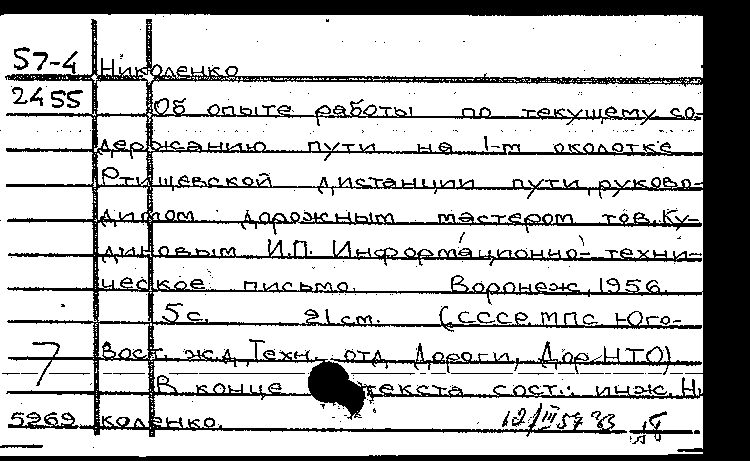 57-4 Николенко
2455 Об опыте работы по текущему со-
держанию пути на 1-м околотке
Ртищевской дистанции пути, руково-
димом дорожным мастером тов. Ку-
диновым И.П. Информационно-техни-
ческое письмо. Воронеж, 1956.
5 с. 21 см. (СССР. МПС Юго-
Вост. ж.д. Техн. отд. Дороги, Дор. НТО)
7
В конце текста сост.: инж. Ни
5269 коленко.